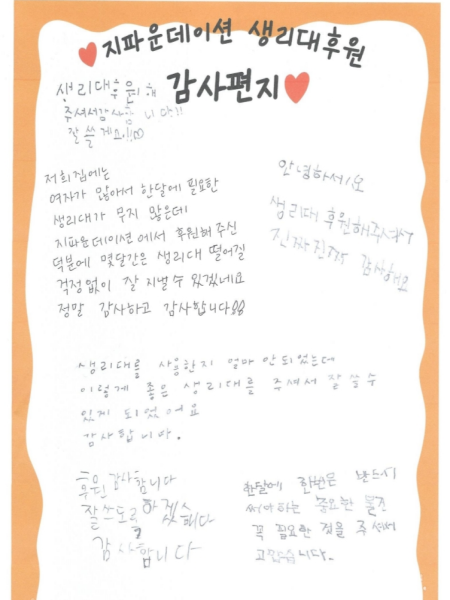 지파운데이션 생리대후원
감사편지
생리대후원해
주셔서감사합니다!!
잘 쓸게요!!
저희집에는
여자가 많아서 한달에 필요한
생리대가 무지 많은데
지파운데이션에서 후원해주신
덕분에 몇달간은 생리대 떨어질
걱정없이 잘 지낼 수 있겠네요
정말 감사하고 감사합니다
안녕하세요
생리대 후원해주셔서
진짜진짜 감사해요
생리대를 사용한지 얼마 안되었는데
이렇게 좋은 생리대를 주셔서 잘 쓸수
있게 되었어요
감사합니다.
후원 감사합니다
잘쓰도록 하겠습니다
감사합니다
한달에 한번은 반드시
써야하는 중요한 물건
꼭 필요한 것을 주셔서
고맙습니다.